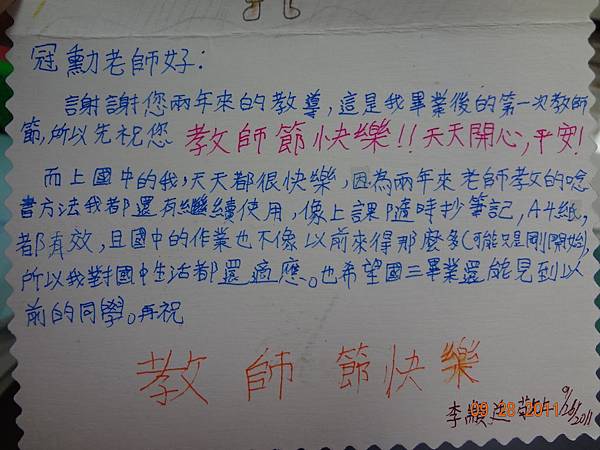 冠勳老師好:
謝謝您兩年來的教導,這是我畢業後的第一次教師
節,所以先祝您 教師節快樂!!天天開心,平安!
而上國中的我,天天都很快樂,因為兩年來老師教的唸
書方法我都還有繼續使用,像上課隨時抄筆記,A4紙,
都有效,且國中的作業也不像以前來得那麼多(可能只是剛開始),
所以我對國中生活都還適應。也希望國三畢業還能見到以
前的同學。再祝
教師節快樂
李顯廷 敬上 9/26/2011
09 28 2011